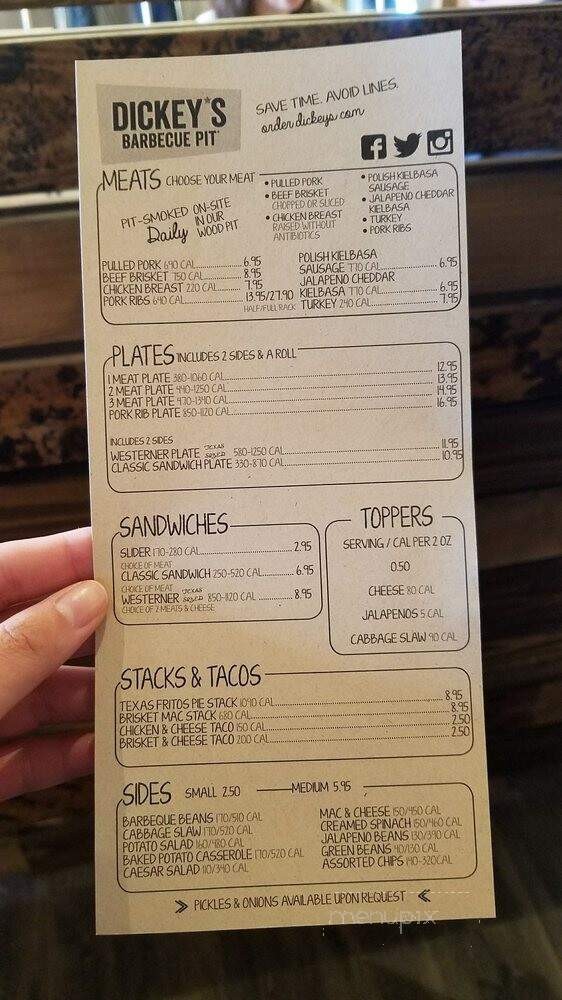 DICKEY'S
BARBECUE PIT
SAVE TIME. AVOID LINES.
orderdickeys.com
MEATS CHOOSE YOUR MEAT
PIT-SMOKED ON-SITE
Daily IN OUR
WOOD PIT
• PULLED PORK
• BEEF BRISKET
CHOPPED OR SLICED
• CHICKEN BREAST
RAISED WITHOUT
ANTIBIOTICS
• POLISH KIELBASA
SAUSAGE
• JALAPENO CHEDDAR
KIELBASA
• TURKEY
• PORK RIBS
PULLED PORK 690 CAL 6.95
BEEF BRISKET 750 CAL 8.95
CHICKEN BREAST 220 CAL 7.95
PORK RIBS 640 CAL 13.95/27.90
HALF/FULL RACK
POLISH KIELBASA
SAUSAGE 770 CAL 6.95
JALAPENO CHEDDAR
KIELBASA 770 CAL 6.95
TURKEY 240 CAL 7.95
PLATES INCLUDES 2 SIDES & A ROLL
1 MEAT PLATE 380-1060 CAL 12.95
2 MEAT PLATE 440-1250 CAL 13.95
3 MEAT PLATE 470-1340 CAL 14.95
PORK RIB PLATE 850-1120 CAL 16.95
INCLUDES 2 SIDES
WESTERNER PLATE TEXAS SIZED 580-1250 CAL 11.95
CLASSIC SANDWICH PLATE 330-870 CAL 10.95
SANDWICHES
SLIDER 170-280 CAL 2.95
CHOICE OF MEAT
CLASSIC SANDWICH 250-520 CAL 6.95
CHOICE OF MEAT
WESTERNER TEXAS SIZED 850-1120 CAL 8.95
CHOICE OF 2 MEATS & CHEESE
TOPPERS
SERVING / CAL PER 2 OZ
0.50
CHEESE 80 CAL
JALAPENOS 5 CAL
CABBAGE SLAW 90 CAL
STACKS & TACOS
TEXAS FRITOS PIE STACK 1090 CAL 8.95
BRISKET MAC STACK 680 CAL 8.95
CHICKEN & CHEESE TACO 150 CAL 2.50
BRISKET & CHEESE TACO 200 CAL 2.50
SIDES SMALL 2.50 MEDIUM 5.95
BARBEQUE BEANS 170/510 CAL
CABBAGE SLAW 170/520 CAL
POTATO SALAD 160/480 CAL
BAKED POTATO CASSEROLE 170/520 CAL
CAESAR SALAD 110/340 CAL
MAC & CHEESE 150/450 CAL
CREAMED SPINACH 150/460 CAL
JALAPENO BEANS 130/390 CAL
GREEN BEANS 40/130 CAL
ASSORTED CHIPS 140-320CAL
PICKLES & ONIONS AVAILABLE UPON REQUEST
menupix